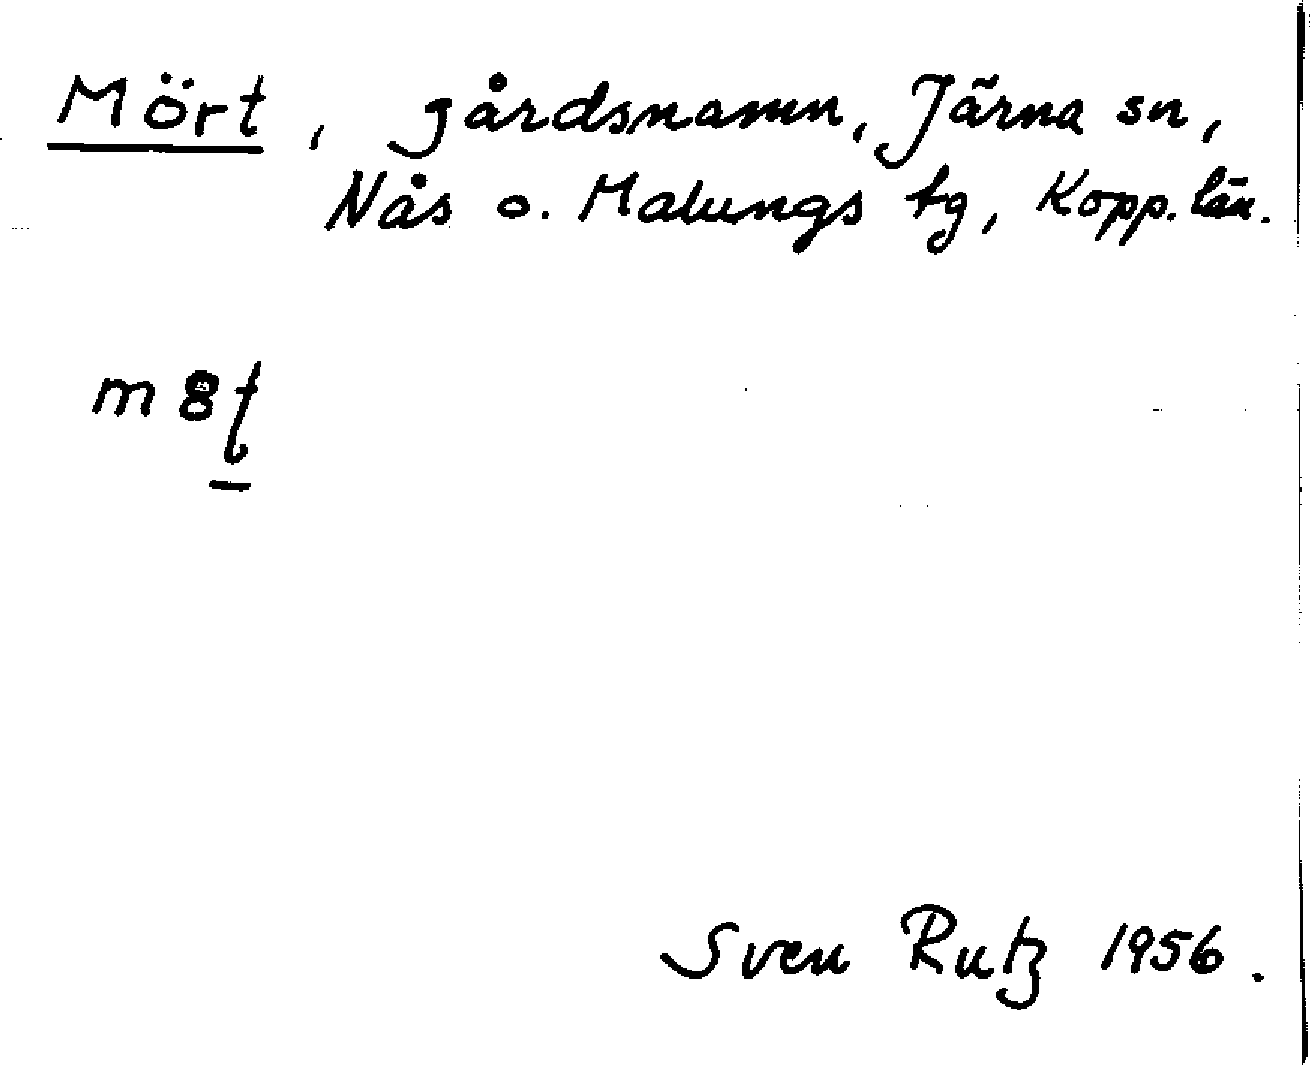 Mört, gårdsnamn, Järna sn,
Nås o. Malungs tg, Kopp. län.
m8ʈ
Sven Rutz 1956.